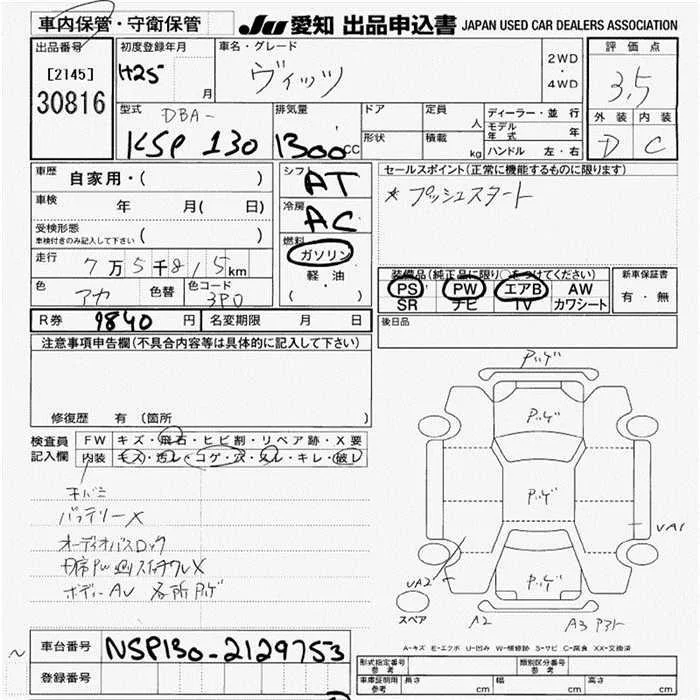 車内保管・守衛保管
JU 愛知 出品申込書 JAPAN USED CAR DEALERS ASSOCIATION
出品番号
[2145]
30816
初度登録年月
H25 月
車名・グレード
ヴィッツ
2WD
・
4WD
評価点
3.5
外装 内装
D C
型式
DBA-
KSP 130
排気量
1300cc
ドア
形状
定員
人
積載
kg
ディーラー・並行
モデル年式 年
ハンドル 左・右
車歴 自家用・( )
車検 年 月( 日)
受検形態
車検付きのみ記入して下さい ( )
走行 7万5千815km
色 アカ 色替 色コード 3P0
シフト
AT
冷房
AC
燃料
ガソリン
軽・油
( )
セールスポイント(正常に機能するものに限ります)
* プッシュスタート
装備品(純正品に限り○をつけてください)
PS PW エアB AW
SR ナビ TV カワシート
新車保証書
有・無
R券 9840円 名変期限 月 日
後日品
注意事項申告欄(不具合内容等は具体的に記入して下さい)
修復歴 有 (箇所
検査員
記入欄
FW キズ・飛石・ヒビ割・リペア跡・X要
内装 キズ・汚レ・コゲ・穴・ヌレ・キレ・破レ
キバミ
バッテリーX
オーディオバスロック
ボディーAU 各所ハゲ
ハゲ
ハゲ
ハゲ
ハゲ
UA1
UA2
A2
A3
スペア
A-キズ E-エクボ U-凹み W-補修跡 S-サビ C-腐食 XX-交換済
車台番号 NSP130-2129753
登録番号
型式指定番号
参考
類別区分番号
参考
車庫証明用
参考
長さ cm 幅 cm 高さ cm